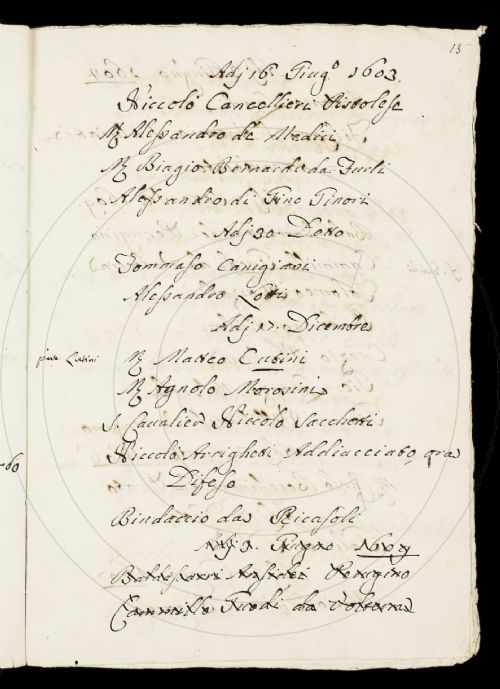 13
Adj 16. Giug.º 1603.
Niccolò Cancellieri Pistolese
M. Alessandro de Medici
M. Biagio Bernardi da Furli
Alessandro di Gino Ginori
Adj 30. Detto
Tommaso Canigiani
Alessandro
Adj 17. Dicembre
M. Matteo Cubini
M. Agnolo Morosini
S. Cavalier Niccolò Sacchetti
Niccolò Arrighetti Addiacciato, ora
Difeso
Bindaccio da Ricasoli
Adj 9. Giugno
Baldassarri Perugino
Cammillo da Volterra